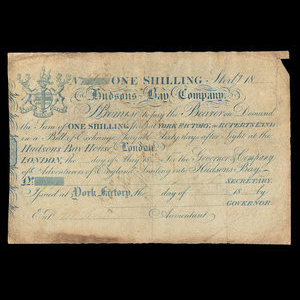 ONE SHILLING Sterlg 18
Hudsons Bay Company.
Promise to pay the Bearer on Demand
the Sum of ONE SHILLING Ster. at YORK FACTORY, in RUPERTS LAND
in a Bill of Exchange Payable Sixty days after Sight at the
Hudsons Bay House London
LONDON, the day of 18 For the Governor & Company
of Adventurers of England trading into Hudsons Bay.
No
SECRETARY.
Issued at York Factory, the day of 18 by
GOVERNOR.
Entd. Accountant